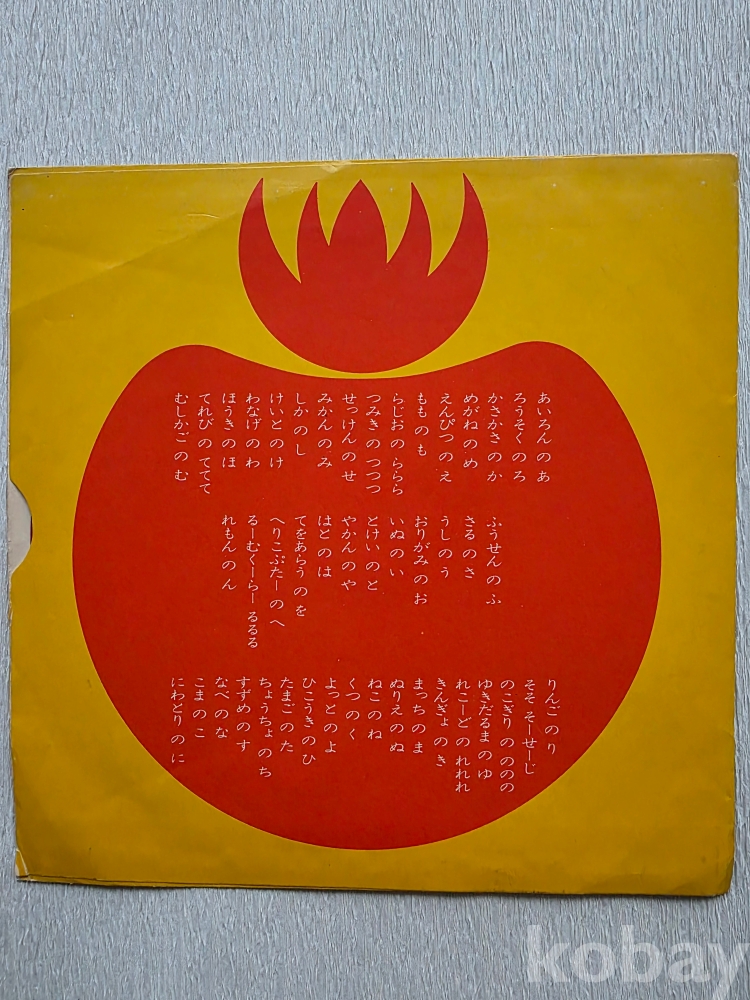 あいろんのあ
ろうそくのろ
かさかさのか
めがねのめ
えんぴつのえ
もものも
らじおの ららら
つみきの つつつ
せっけんのせ
みかんのみ
しかのし
けいとのけ
わなげのわ
ほうきのほ
てれびの ててて
むしかごのむ
ふうせんのふ
さるのさ
うしのう
おりがみのお
いぬのい
とけいのと
やかんのや
はとのは
てをあらうのを
へりこぷたーのへ
るーむくーらーるるる
れもんのん
りんごのり
そそ そーせーじ
のこぎりの ののの
ゆきだるまのゆ
れこーどの れれれ
きんぎょのき
まっちのま
ぬりえのぬ
ねこのね
くつのく
よっとのよ
ひこうきのひ
たまごのた
ちょうちょのち
すずめのす
なべのな
こまのこ
にわとりのに
kobay